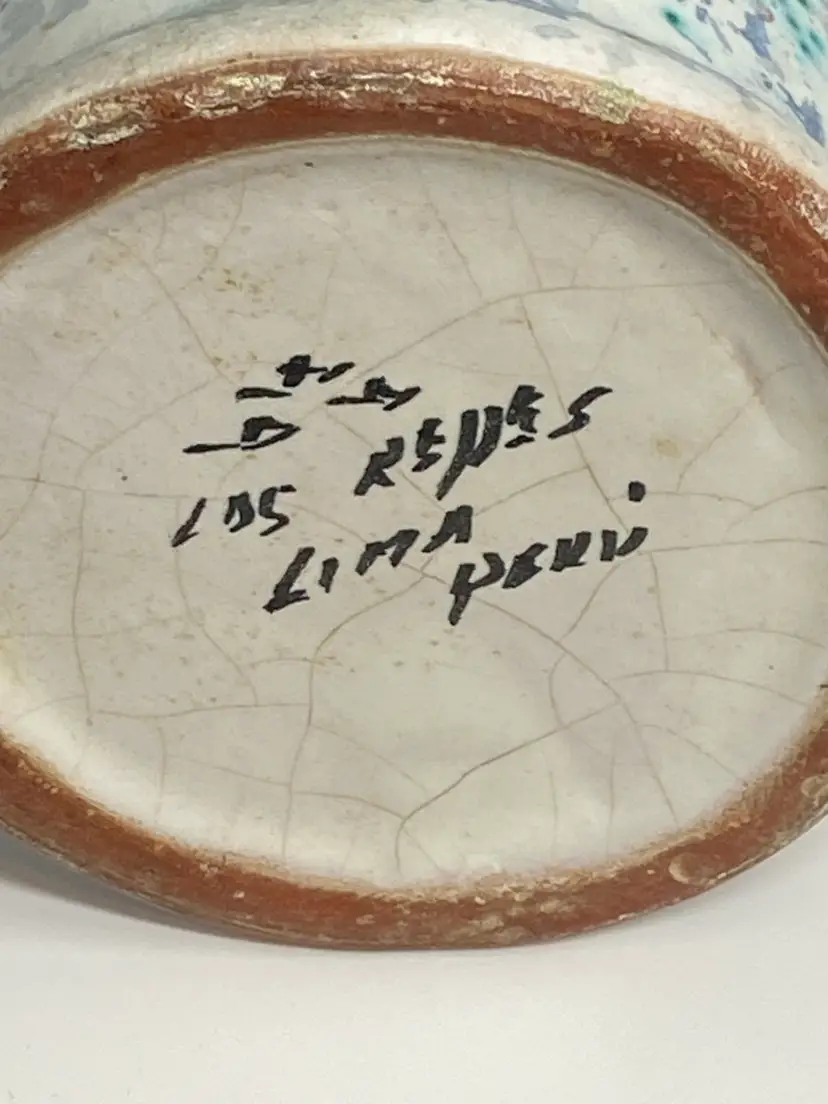 LOS REYES
LIMA PERÚ